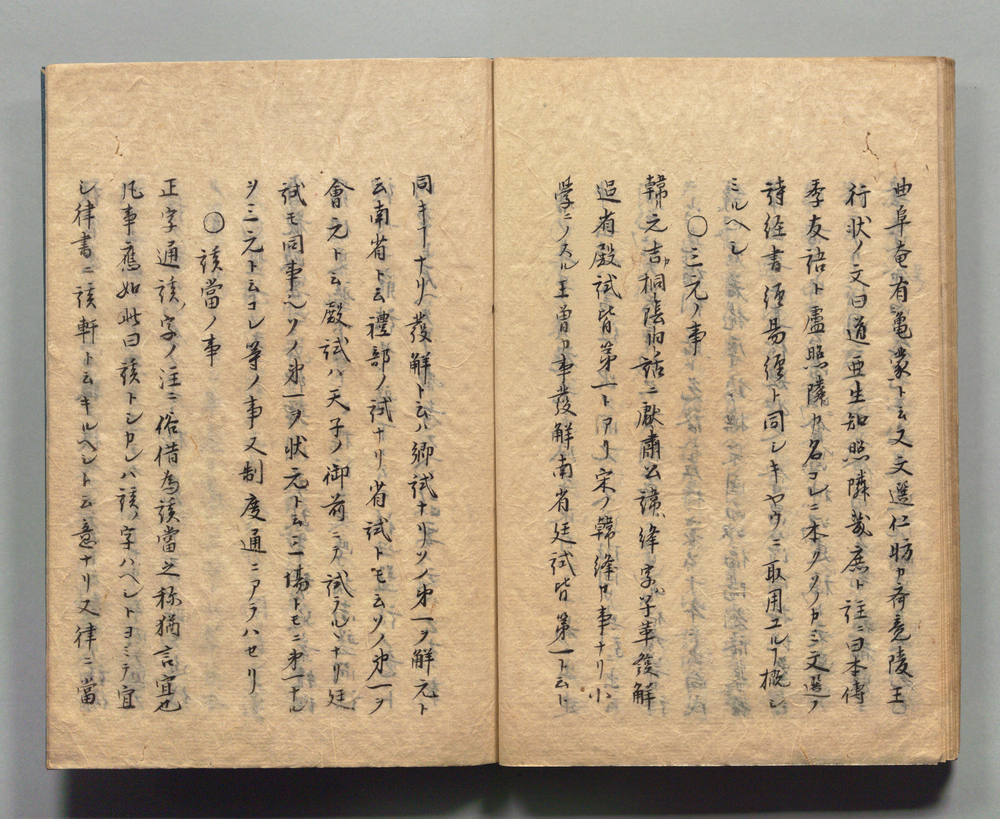 曲阜奄有亀蒙ト云又文選任昉カ斉竟陵王
行状ノ文曰道亜生知照隣幾庶ト註ニ曰本傳
季友語ト盧照隣カ名コレニ本ツクカミ文選ノ
詩経書經易經ト同シキヤウニ取用ユルヿ概シ
ミルヘシ
〇三元ノ事
韓元吉カ桐陰旧話ニ献肅公諱ハ絳字子華發解
過省殿試皆第一トアリ宋ノ韓絳カ事ナリ小
学ニノスル王曽カ事發解南省廷試皆第一ト云ト
同キヿナリ發解ト云ハ郷試ナリソノ第一ヲ解元ト
云南省ト云禮部ノ試ナリ省試トモ云ソノ第一ヲ
會元ト云殿試ハ天子ノ御前ニテ試ラルヽナリ廷
試モ同事也ソノ第一ヲ状元ト云三場トモニ第一ナル
ヲ三元ト云コレ等ノ事又制度通ニアラハセリ
〇該當ノ事
正字通該ノ字ノ注ニ俗借為該當之称猶言宜也
凡事應如此曰該トシカレハ該ノ字ハヘシトヨミテ宜
シ律書ニ該斬ト云キルヘシト云意ナリ又律ニ當